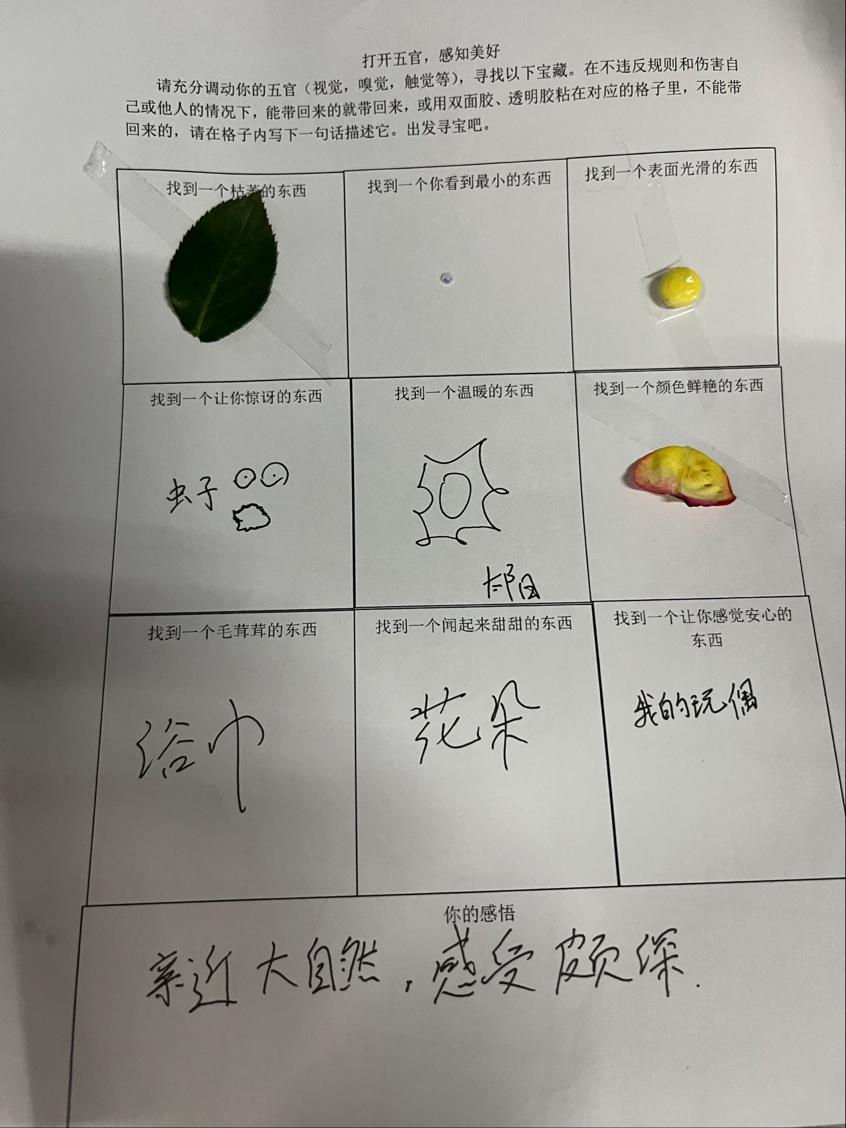 打开五官，感知美好
请充分调动你的五官（视觉，嗅觉，触觉等），寻找以下宝藏。在不违反规则和伤害自
己或他人的情况下，能带回来的就带回来，或用双面胶、透明胶粘在对应的格子里，不能带
回来的，请在格子内写下一句话描述它。出发寻宝吧。
找到一个枯萎的东西
找到一个你看到最小的东西
找到一个表面光滑的东西
找到一个让你惊讶的东西
虫子
找到一个温暖的东西
太阳
找到一个颜色鲜艳的东西
找到一个毛茸茸的东西
浴巾
找到一个闻起来甜甜的东西
花朵
找到一个让你感觉安心的
东西
我的玩偶
你的感悟
亲近大自然，感受颇深.